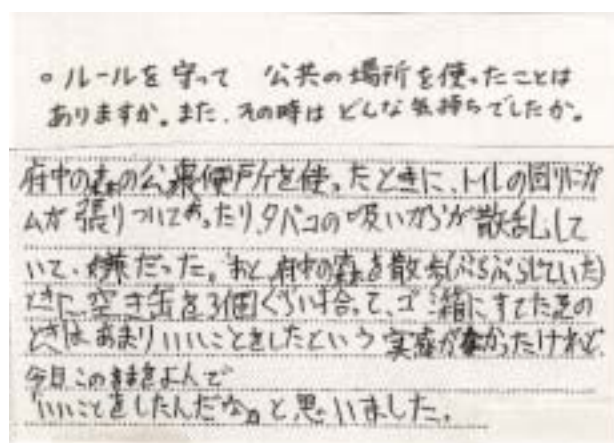 ○ルールを守って 公共の場所を使ったことは
ありますか。また、その時は どんな気持ちでしたか。
府中の森の公衆便所を使ったときに、トイレの回りにガ
ムが張りついてあったり、タバコの吸いがらが散乱して
いて、嫌だった。あと、府中の森を散歩(ぶらぶらしていた)
ときに、空き缶を3個くらい拾って、ゴミ箱にすてた。その
ときは あまりいいことをしたという 実感がなかったけれど、
今日この をよんで
「いいことをしたんだな」と思いました。